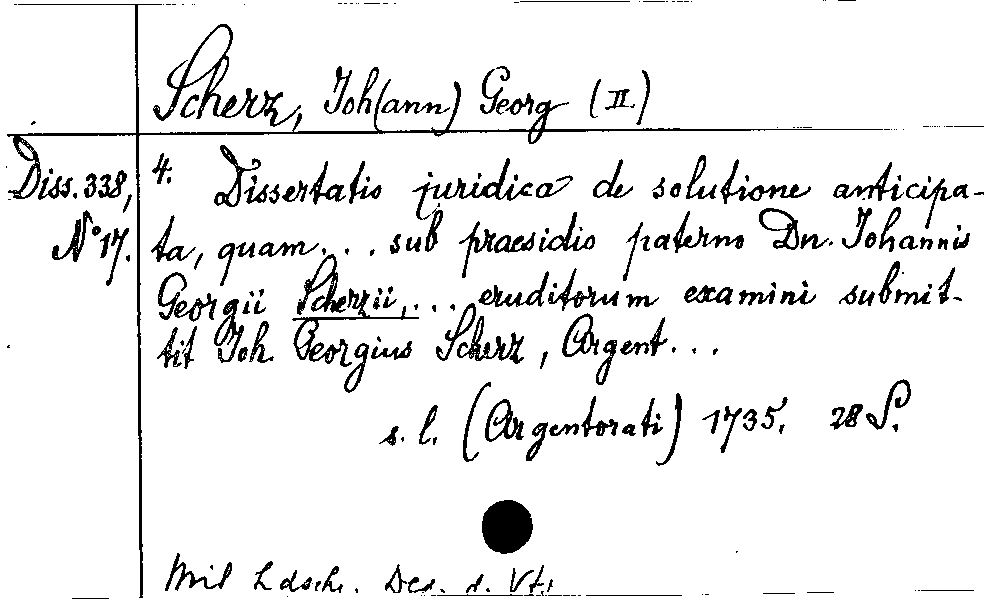 Scherz, Joh(ann) Georg (II)
Diss. 338, N° 17.
4. Dissertatio juridica de solutione anticipa-
ta, quam... sub praesidio paterno Dn. Johannis
Georgii Scherzii,... eruditorum examini submit-
tit Joh. Georgius Scherz, Argent...
s. l. (Argentorati) 1735. 28 S.
Mit hdschr. Ded. d. Vfs.